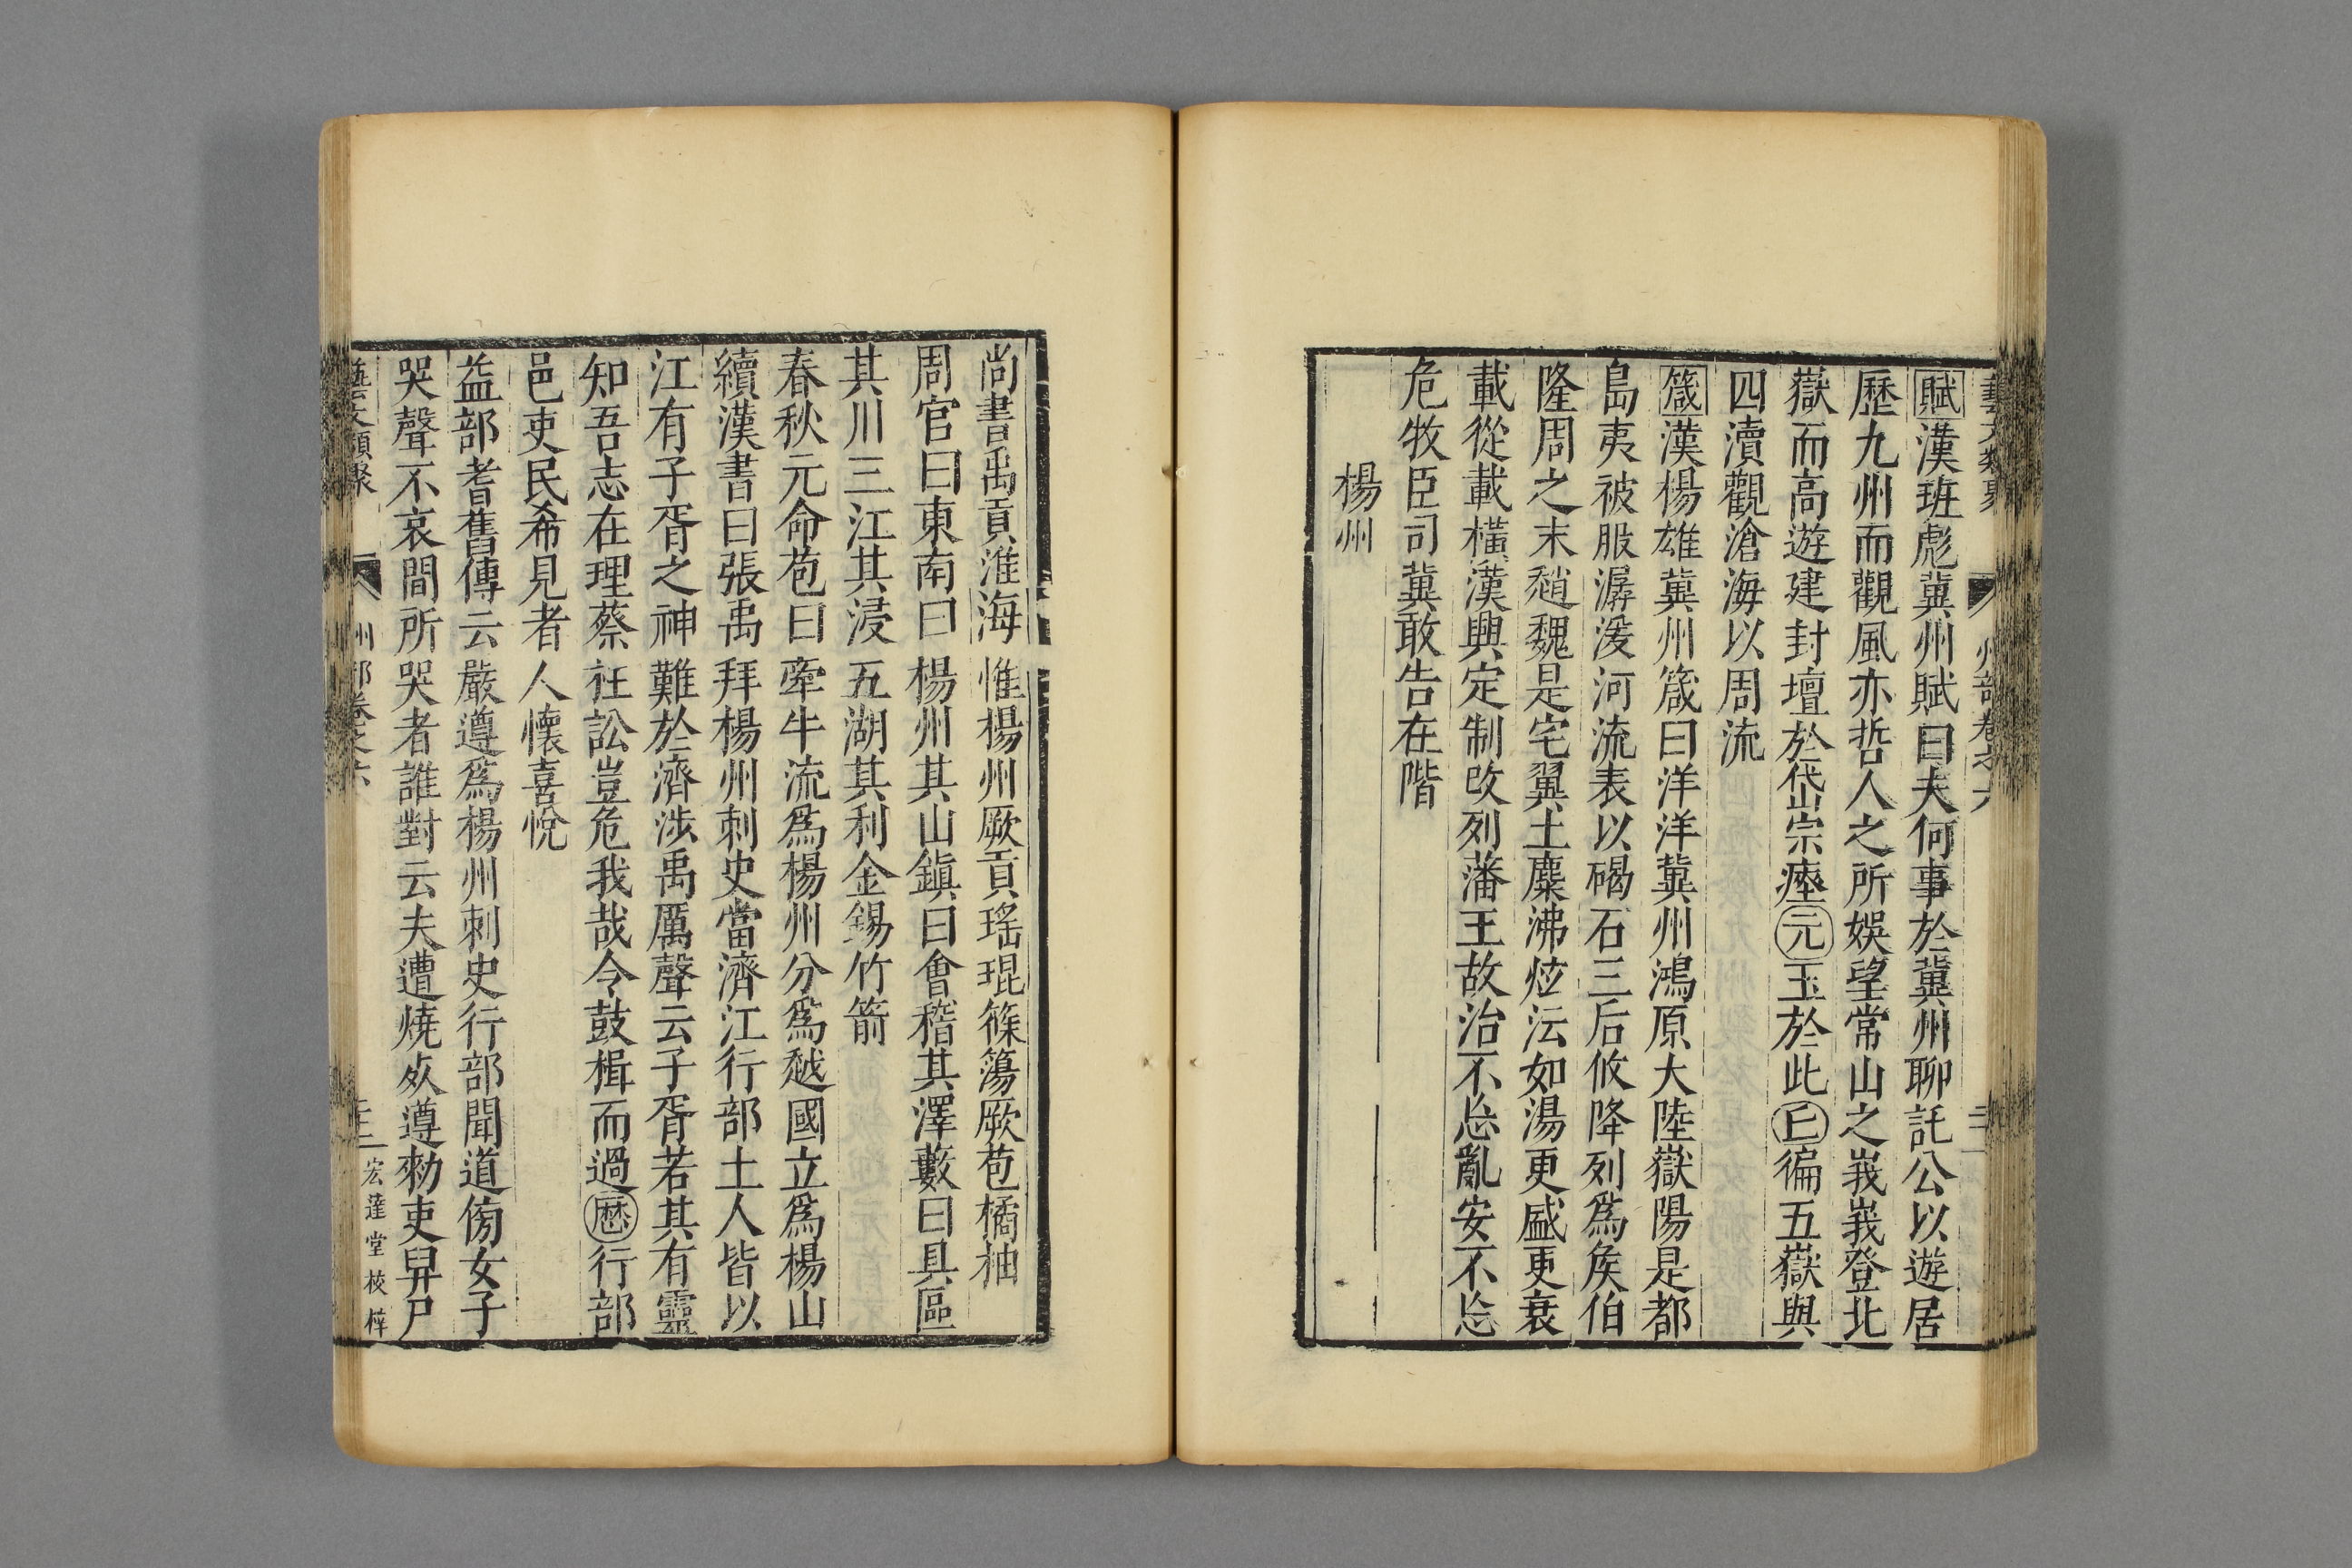 賦漢班彪冀州賦曰夫何事於冀州聊託公以遊居
歷九州而觀風亦哲人之所娛望常山之峩峩登北
嶽而高遊建封壇於岱宗瘞元玉於此丘徧五嶽與
四瀆觀滄海以周流
箴漢楊雄冀州箴曰洋洋冀州鴻原大陸嶽陽是都
島夷被服潺湲河流表以碣石三后攸降列爲矦伯
隆周之末趙魏是宅冀土麋沸炫沄如湯更盛更衰
載從載橫漢興定制改列藩王故治不忘亂安不忘
危牧臣司冀敢告在階
楊州
尚書禹貢淮海惟楊州厥貢瑤琨篠簜厥苞橘柚
周官曰東南曰楊州其山鎮曰會稽其澤藪曰具區
其川三江其浸五湖其利金錫竹箭
春秋元命苞曰牽牛流爲楊州分爲越國立爲楊山
續漢書曰張禹拜楊州刺史當濟江行部土人皆以
江有子胥之神難於濟涉禹厲聲云子胥若其有靈
知吾志在理蔡枉訟豈危我哉令鼓楫而過歷行部
邑吏民希見者人懷喜悅
益部耆舊傳云嚴遵爲楊州刺史行部聞道傍女子
哭聲不哀間所哭者誰對云夫遭燒死遵勑吏舁尸
藝文類聚
州部卷之六
宏達堂校梓